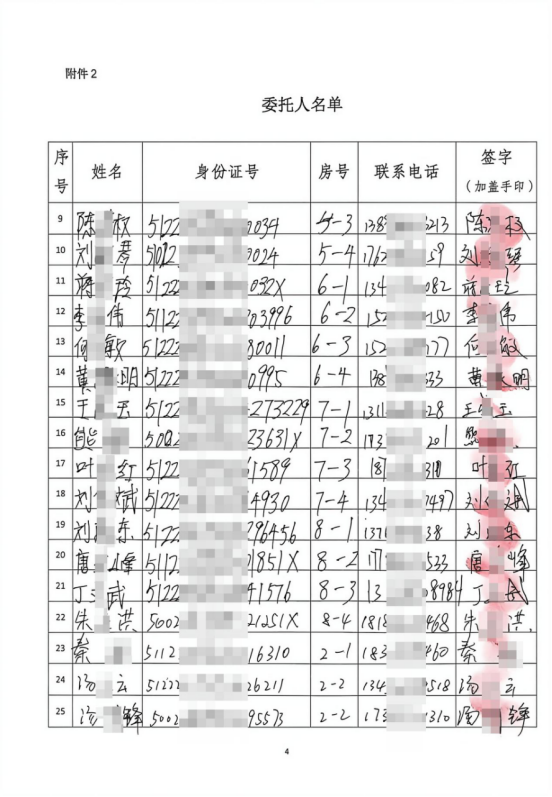 附件2
委托人名单
序号 姓名 身份证号 房号 联系电话 签字（加盖手印）
9 陈 权 5122 0034 5-3 138 3213 陈 权
10 刘 琴 5012 0024 5-4 1762 59 刘 琴
11 蒋 玲 5122 032X 6-1 134 082 蒋 玲
12 李 伟 5112 03996 6-2 152 150 李 伟
13 何 敏 51222 80011 6-3 152 177 何 敏
14 黄 明 5122 0995 6-4 138 333 黄 明
15 王 玉 5122 273229 7-1 1311 28 王 玉
16 熊 5002 23631X 7-2 173 201 熊
17 叶 红 5122 61589 7-3 187 310 叶 红
18 刘 斌 5122 4930 7-4 134 7497 刘 斌
19 刘 东 5122 296456 8-1 1371 38 刘 东
20 唐 峰 5112 01851X 8-2 17 533 唐 峰
21 丁 武 5122 41576 8-3 13 8984 丁 武
22 朱 洪 5002 21251X 8-4 1818 468 朱 洪
23 秦 5112 16310 2-1 183 460 秦
24 汤 云 51222 26211 2-2 134 518 汤 云
25 锋 5002 95573 2-2 173 310 锋
4